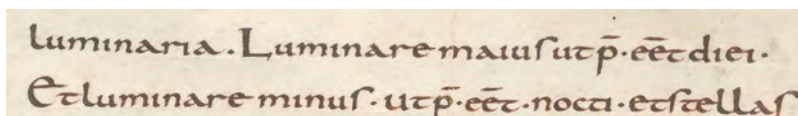 luminaria. Luminare maius ut p̄·eēt diei·
Et luminare minus· ut p̄·eēt· nocti· et stellas